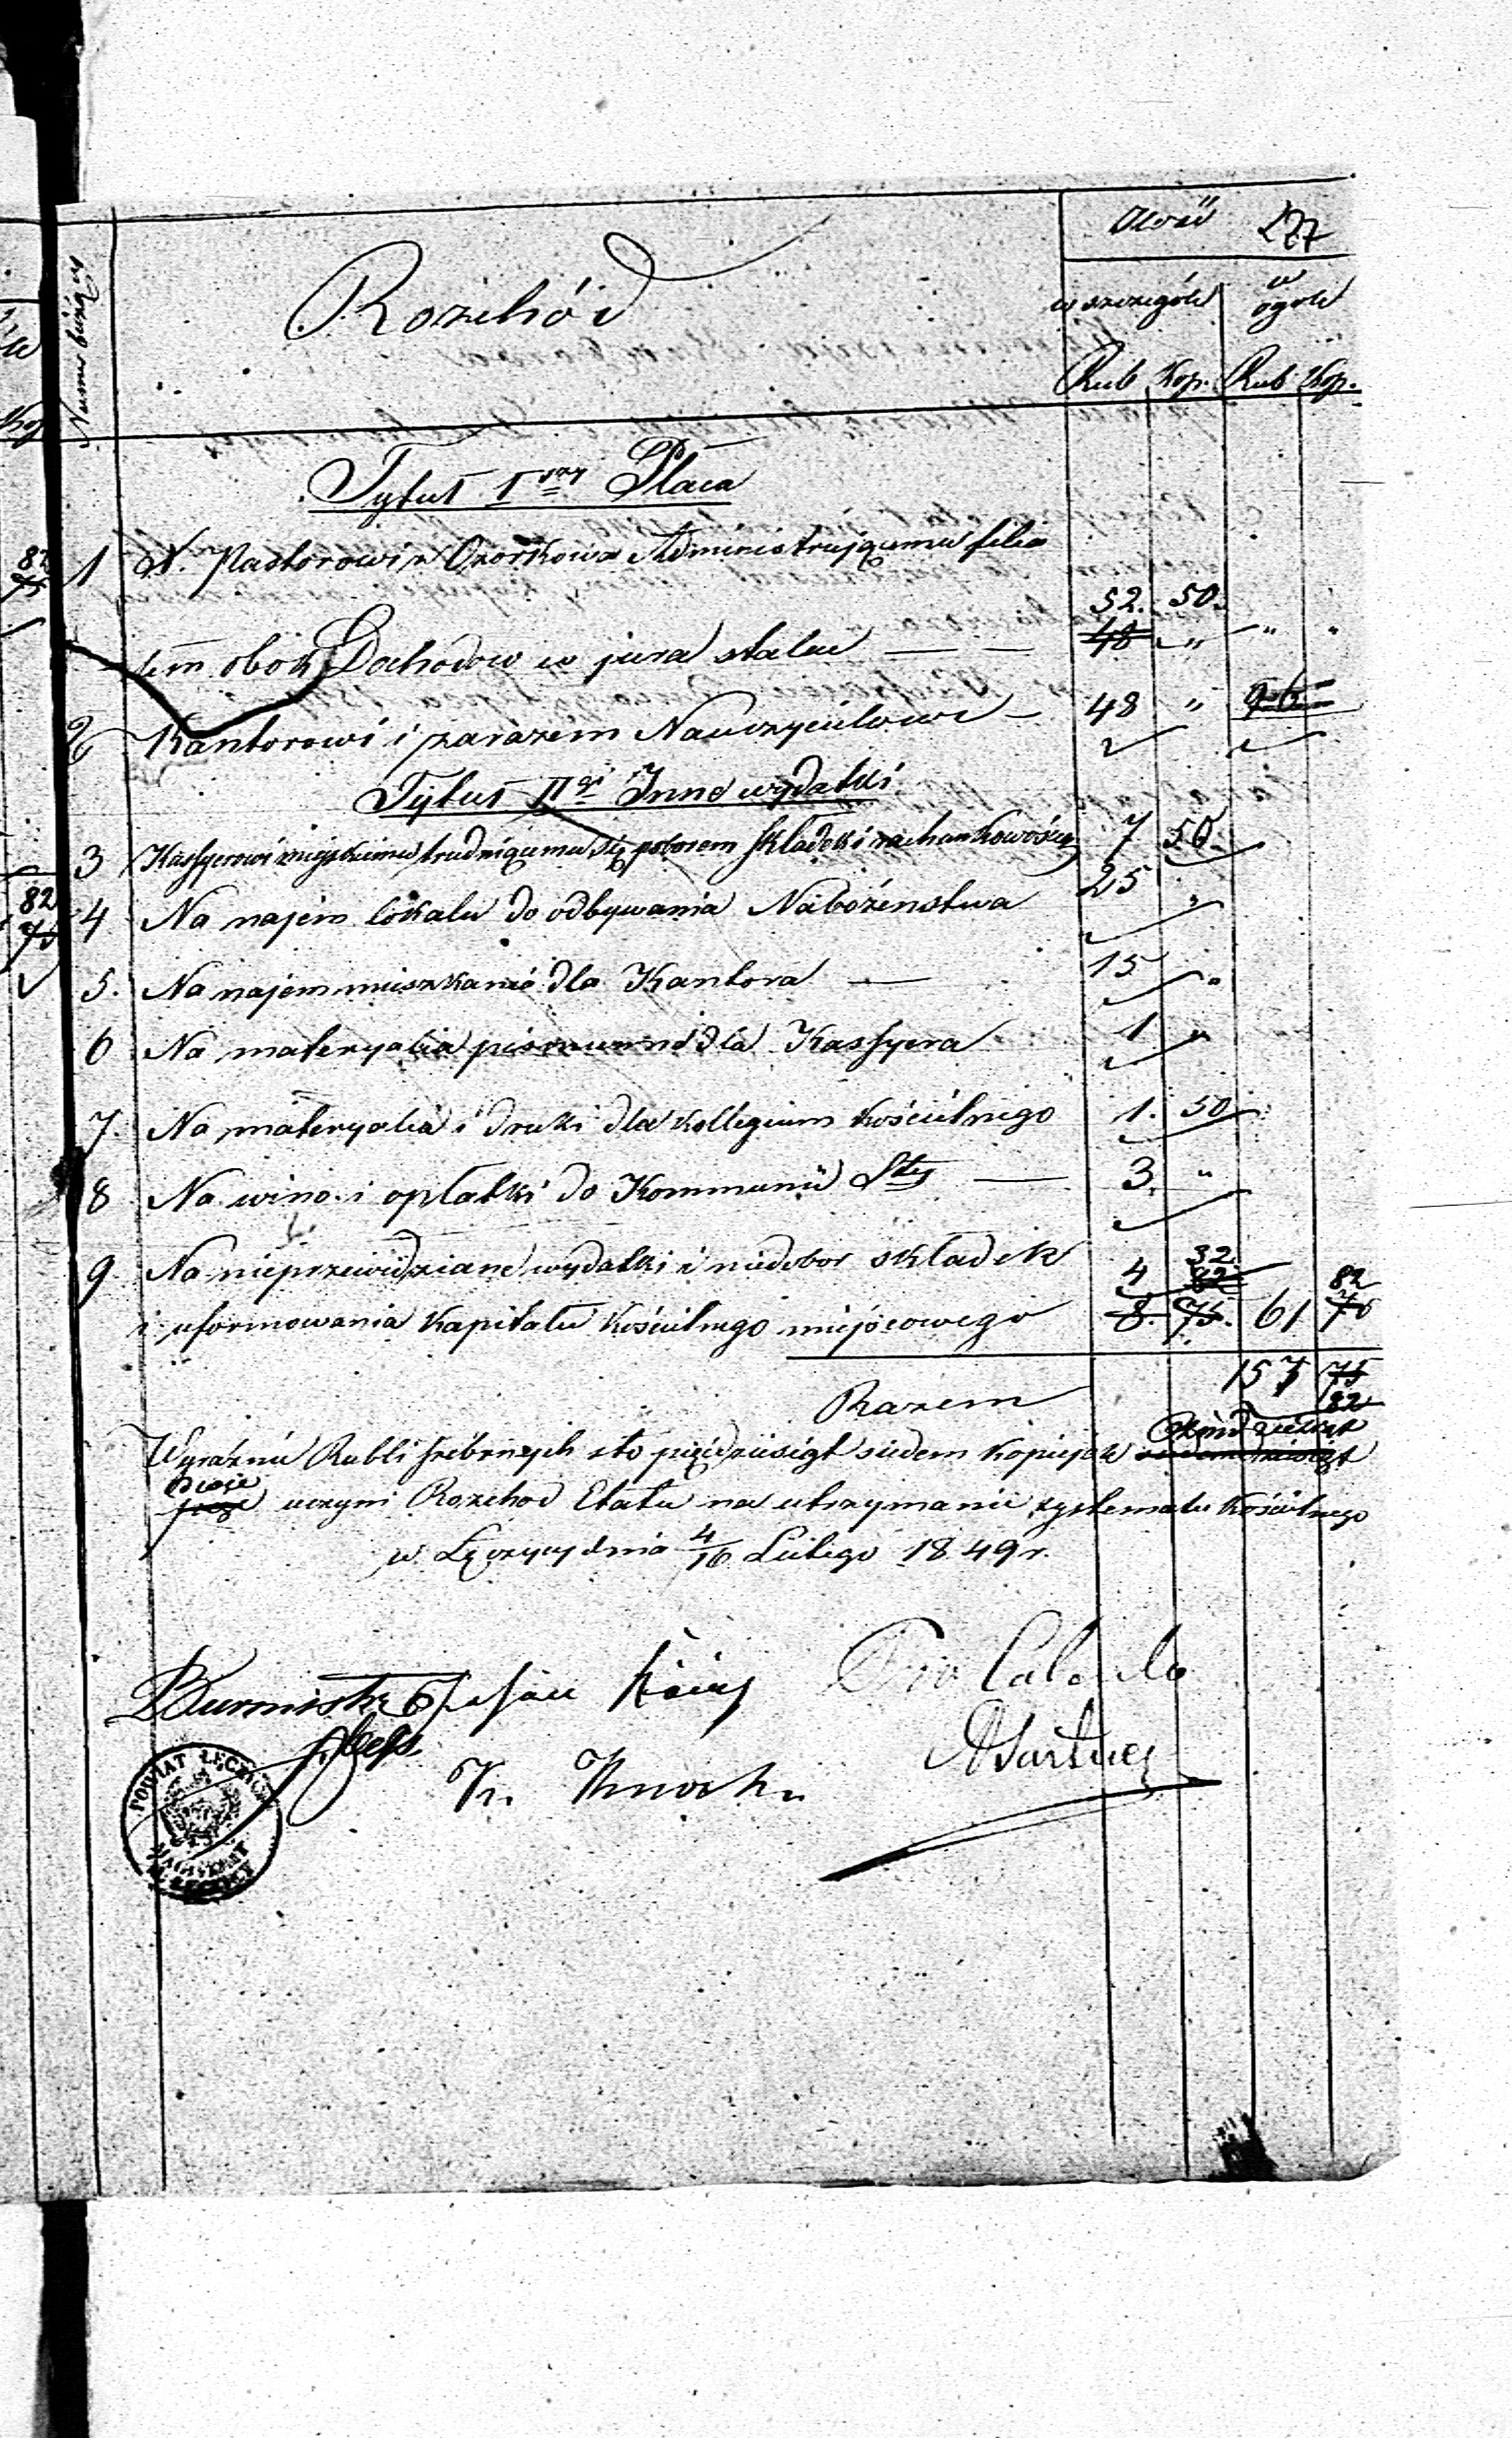 Numer bieżący
Rozchód
277
w szczególe w ogóle
Rub Kop. Rub Kop.
Tytuł I szy Płaca
1 X. Pastorowi z Ozorkowa Administrującemu filia
52. 50.
łem obok Dochodow w jura stolae — — 48 " " "
2 Kantorowi i zarazem Nauczycielowi — 48 " 96
Tytuł II gi Inne wydatki
3 Kassyerowi miejskiemu trudniącemu się poborem składek i rachunkowością 7 50
4 Na najem lokalu do odbywania Nabożeństwa 25 "
5. Na najem mieszkania dla Kantora — 15 "
6 Na materyalia pismienne dla Kassyera 1 "
7. Na materyalia i druki dla Kollegium Kościelnego 1. 50
8 Na wino i opłatki do Kommunii Stey — 3. "
9 Na nieprzewidziane wydatki i niedobor składek 4 32 82
i uformowania Kapitału Kościelnego miejscowego 8. 75. 61 75
Razem 157 75
82
Wyraźnie Rubli srebrnych sto pięćdziesiąt siedem kopiejek siedemdziesiąt
pięć dwie uczyni Rozchod Etatu na utrzymanie systematu Kościelnego
w Łęczycy dnia 4/16 Lutego 1849 r.
Burmistrz
Pro Calculo
POWIAT ŁĘCZYCKI
MAGISTRAT